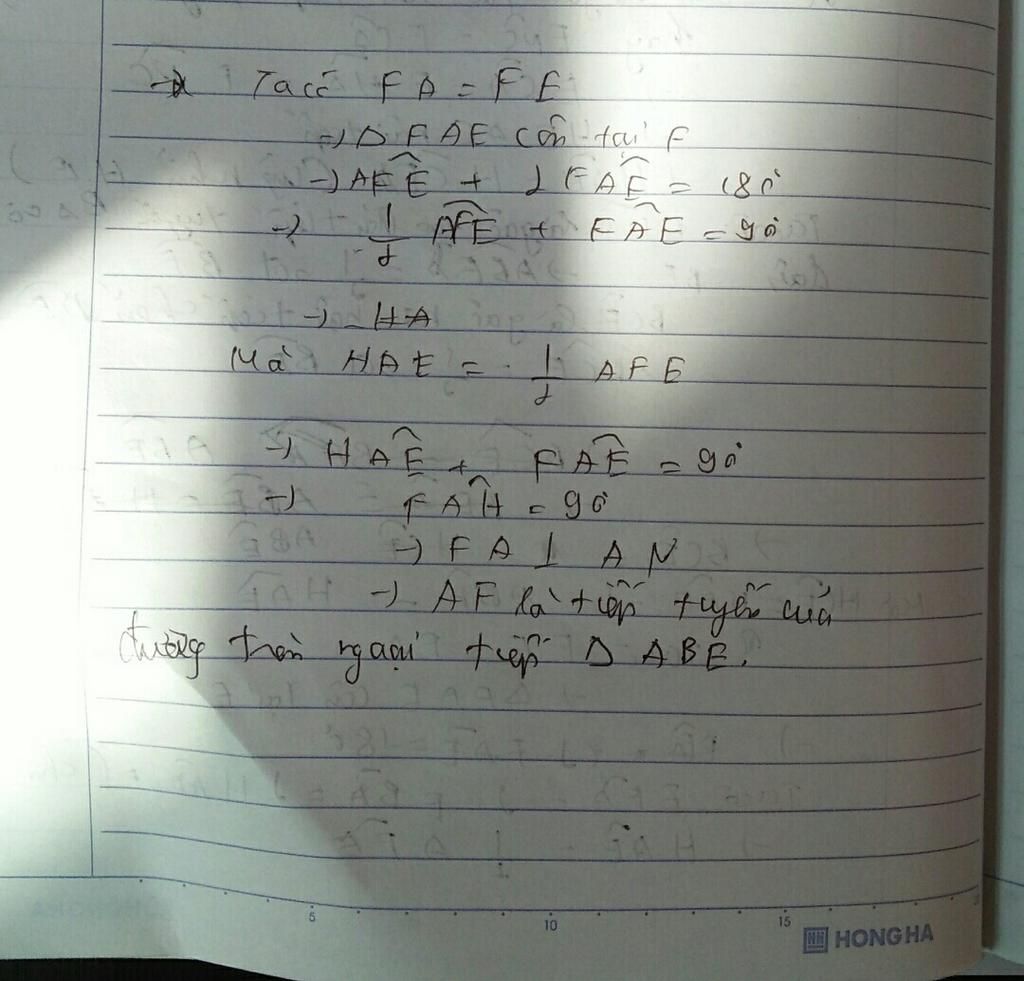 → Ta có FA = FE
→ Δ FAE cân tại F
→ \widehat{AFE} + 2 \widehat{FAE} = 180°
→ 1/2 \widehat{AFE} + \widehat{FAE} = 90°
→ HA
Mà HAE = 1/2 AFE
→ \widehat{HAE} + \widehat{FAE} = 90°
→ \widehat{FAH} = 90°
→ FA ⊥ AN
→ AF là tiếp tuyến của
đường tròn ngoại tiếp Δ ABE.
5 10 15
HONG HA